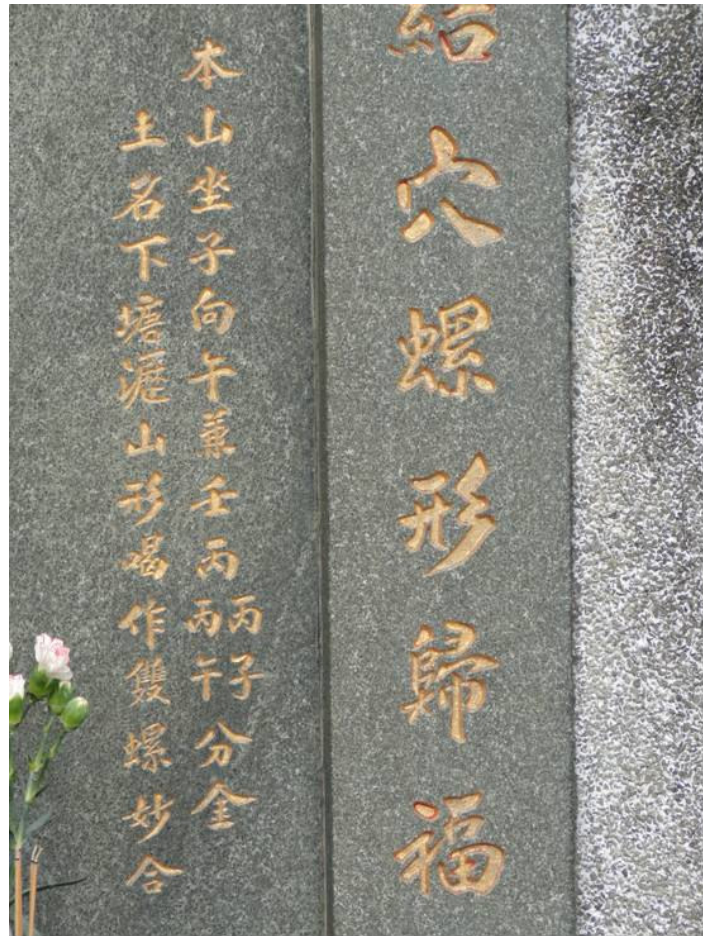 結穴螺形歸福
本山坐子向午兼壬丙丙子丙午分金
土名下塘瀝山形喝作雙螺妙合